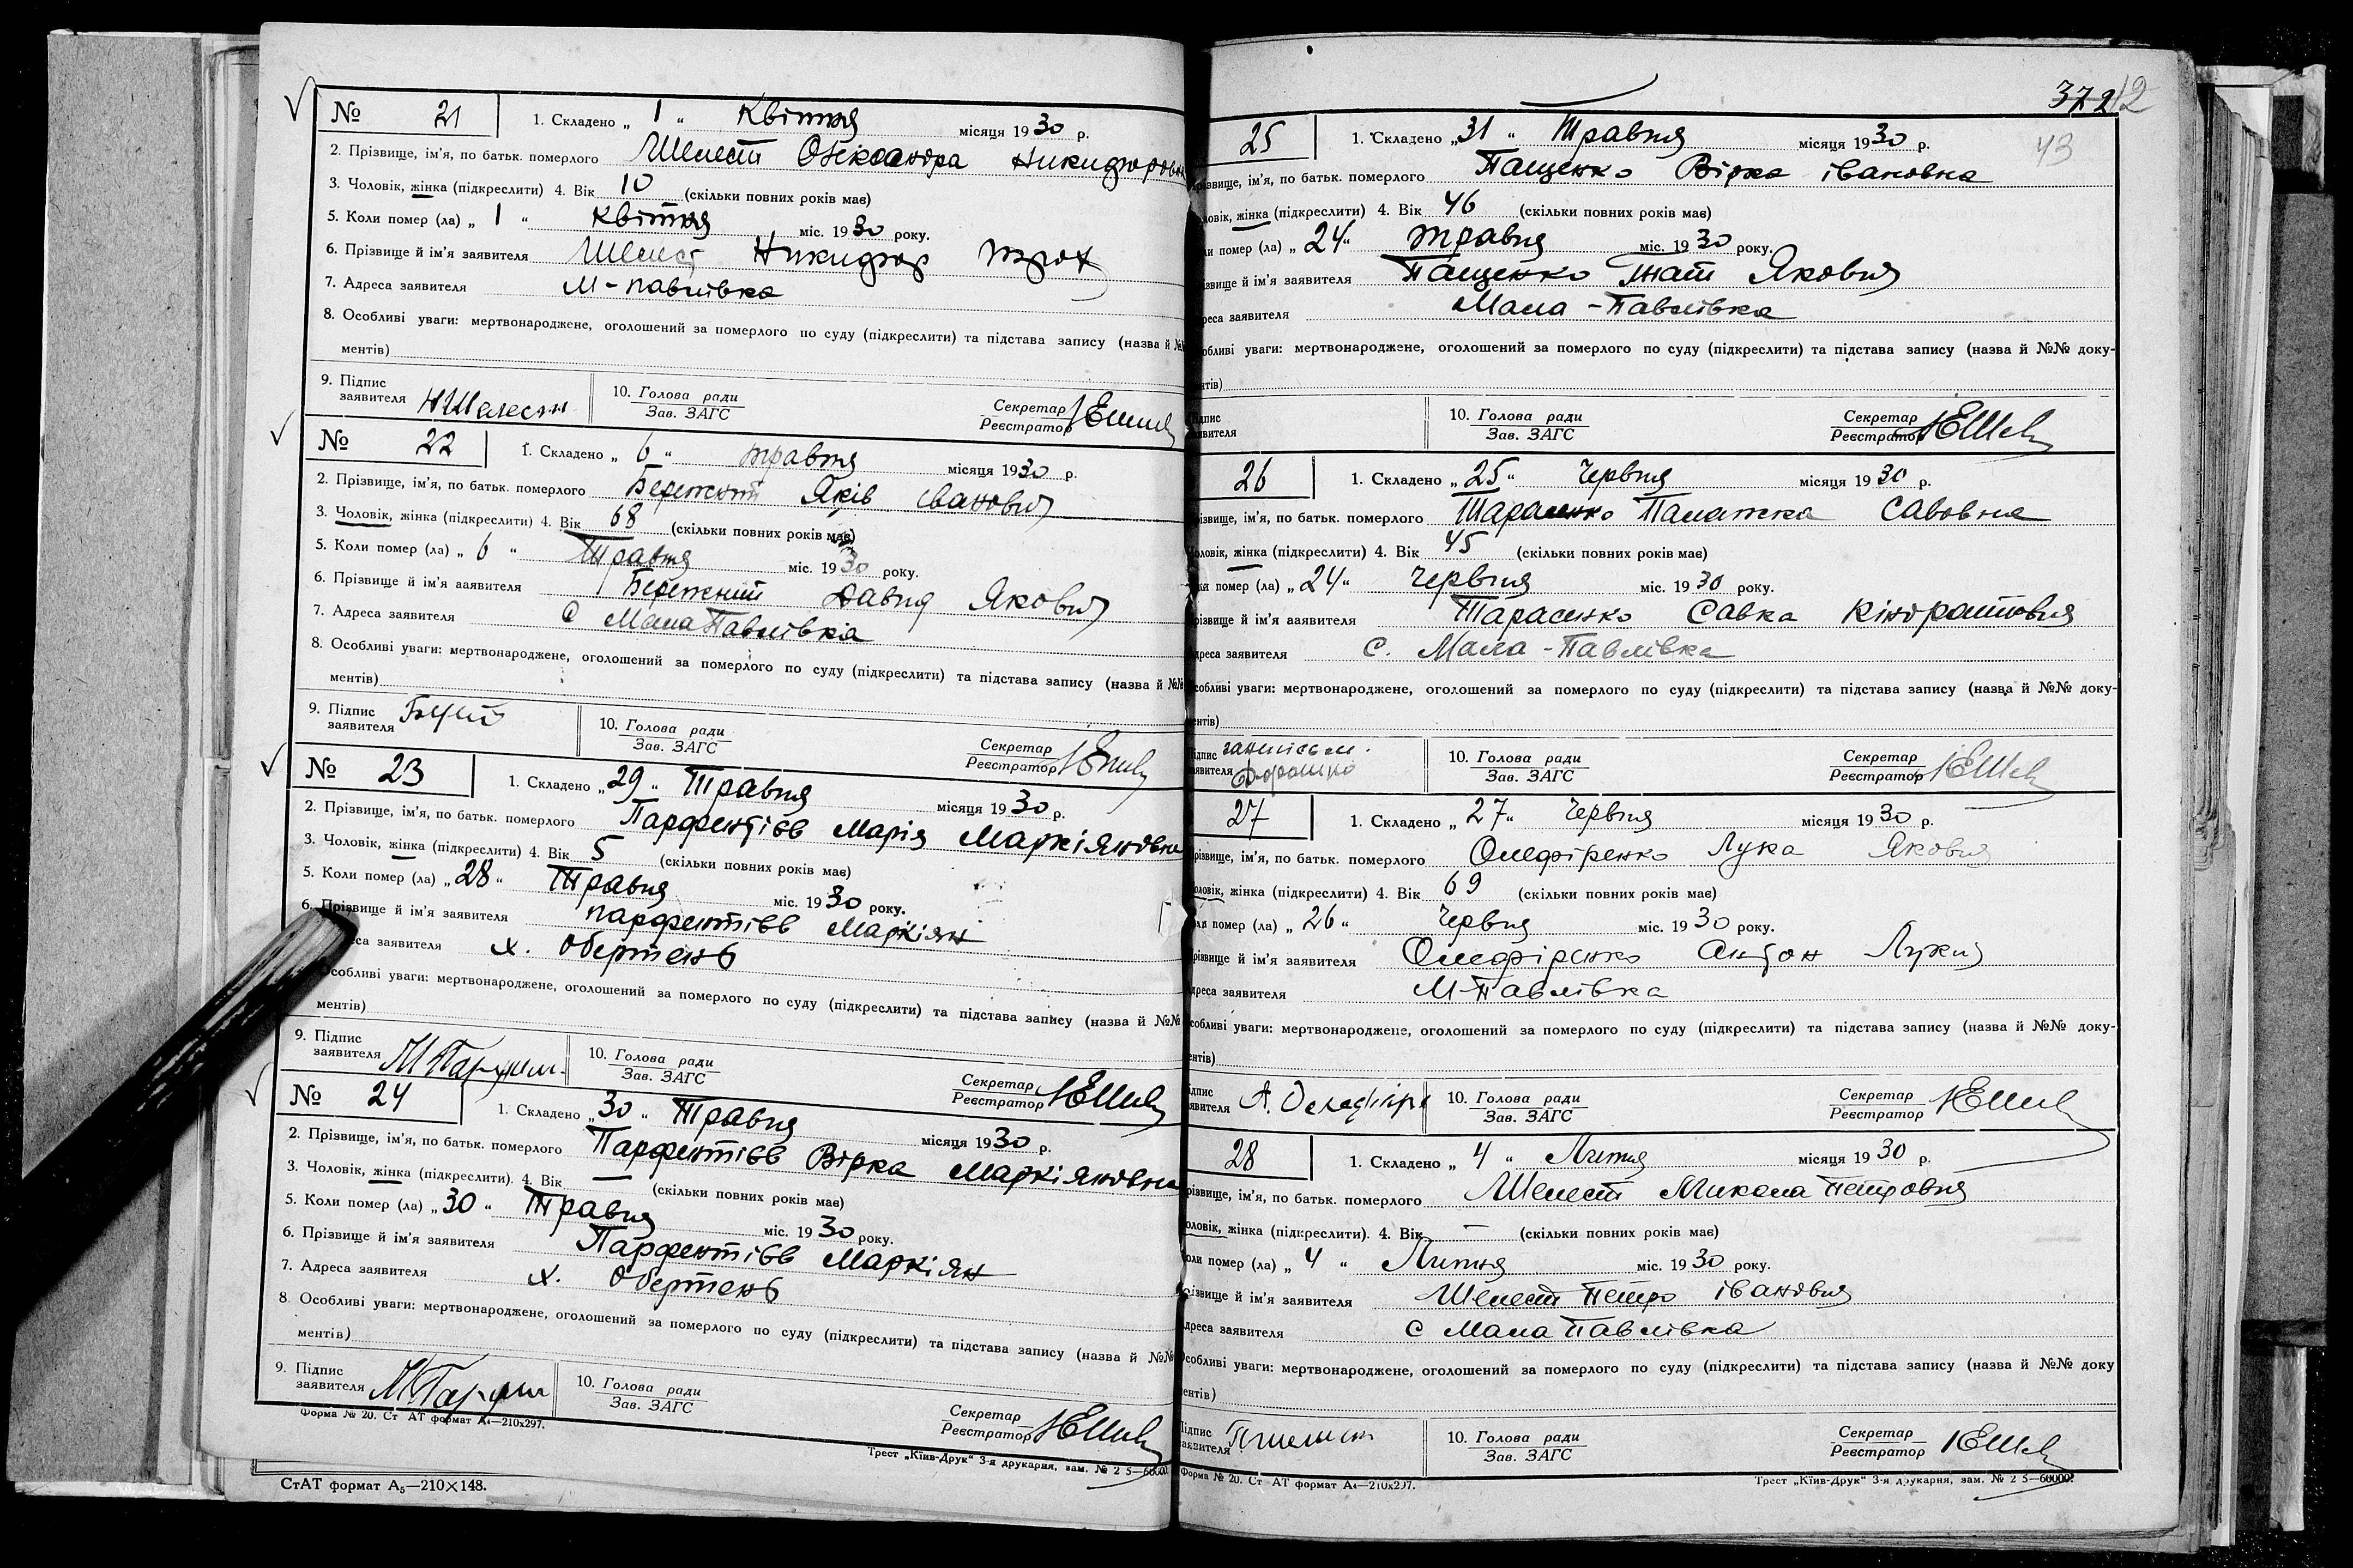 № 21 1. Складено „ 1 “ Квітня місяця 1930 р.
2. Прізвище, ім'я, по батьк. померлого Шелест Олександра Никифоровн
3. Чоловік, жінка (підкреслити) 4. Вік 10 (скільки повних років має)
5. Коли помер (ла) „ 1 “ Квітня міс. 1930 року.
6. Прізвище й ім'я заявителя Шелест Никифор
7. Адреса заявителя М-Павлівка
8. Особливі уваги: мертвонароджене, оголошений за померлого по суду (підкреслити) та підстава запису (назва й №
ментів)
9. Підпис заявителя НШелест 10. Голова ради Зав. ЗАГС Секретар Реєстратор
№ 22 1. Складено „ 6 “ травня місяця 1930 р.
2. Прізвище, ім'я, по батьк. померлого Бережний Яків Іванович
3. Чоловік, жінка (підкреслити) 4. Вік 68 (скільки повних років має)
5. Коли помер (ла) „ 6 “ Травня міс. 1930 року.
6. Прізвище й ім'я аявителя Бережний Давид Якович
7. Адреса заявителя с Мала Павлівка
8. Особливі уваги: мертвонароджене, оголошений за померлого по суду (підкреслити) та підстава запису (назва й №№
ментів)
9. Підпис заявителя 10. Голова ради Зав. ЗАГС Секретар Реєстратор
№ 23 1. Складено „ 29 “ Травня місяця 1930 р.
2. Прізвище, ім'я, по батьк. померлого Парфентієв Марія Маркіяновна
3. Чоловік, жінка (підкреслити) 4. Вік 5 (скільки повних років має)
5. Коли помер (ла) „ 28 “ Травня міс. 1930 року.
6. Прізвище й ім'я заявителя Парфентієв Маркіян
еса заявителя х. Обертень
Особливі уваги: мертвонароджене, оголошений за померлого по суду (підкреслити) та підстава запису (назва й №№
ментів)
9. Підпис заявителя 10. Голова ради Зав. ЗАГС Секретар Реєстратор
№ 24 1. Складено „ 30 “ Травня місяця 1930 р.
2. Прізвище, ім'я, по батьк. померлого Парфентієв Вірка Маркіяновна
3. Чоловік, жінка (підкреслити). 4. Вік — (скільки повних років має)
5. Коли помер (ла) „ 30 “ Травня міс. 1930 року.
6. Прізвище й ім'я заявителя Парфентієв Маркіян
7. Адреса заявителя х. Обертень
8. Особливі уваги: мертвонароджене, оголошений за померлого по суду (підкреслити) та підстава запису (назва й №№
ментів)
9. Підпис заявителя 10. Голова ради Зав. ЗАГС Секретар Реєстратор
Форма № 20. Ст АТ формат А4—210х297.
Трест „Київ-Друк“ 3-я друкарня, зам. № 2 5—60000
СтАТ формат А5—210×148.
372 12
43
25 1. Складено „ 31 “ Травня місяця 1930 р.
різвище, ім'я, по батьк. померлого Пащенко Вірка Івановна
ловік, жінка (підкреслити) 4. Вік 46 (скільки повних років має)
ли помер (ла) „ 24 “ травня міс. 1930 року.
ізвище й ім'я заявителя Пащенко Гнат Якович
реса заявителя Мала-Павлівка
собливі уваги: мертвонароджене, оголошений за померлого по суду (підкреслити) та підстава запису (назва й №№ доку-
нтів)
ідпис аявителя 10. Голова ради Зав. ЗАГС Секретар Реєстратор
26 1. Складено „ 25 “ Червня місяця 1930 р.
різвище, ім'я, по батьк. померлого Тарасенко Палажка Савовна
оловік, жінка (підкреслити) 4. Вік 45 (скільки повних років має)
ли помер (ла) „ 24 “ Червня міс. 1930 року.
різвище й ім'я аявителя Тарасенко Савка Кіндратович
дреса заявителя с. Мала-Павлівка
собливі уваги: мертвонароджене, оголошений за померлого по суду (підкреслити) та підстава запису (назва й №№ доку-
ентів)
ідпис аявителя 10. Голова ради Зав. ЗАГС Секретар Реєстратор
27 1. Складено „ 27 “ Червня місяця 1930 р.
різвище, ім'я, по батьк. померлого Олефіренко Лука Якович
оловік, жінка (підкреслити) 4. Вік 69 (скільки повних років має)
ли помер (ла) „ 26 “ Червня міс. 1930 року.
різвище й ім'я заявителя Олефіренко Антон Лукич
дреса заявителя М-Павлівка
собливі уваги: мертвонароджене, оголошений за померлого по суду (підкреслити) та підстава запису (назва й №№ доку-
ентів)
ідпис аявителя А. Олефір 10. Голова ради Зав. ЗАГС Секретар Реєстратор
28 1. Складено „ 4 “ Липня місяця 1930 р.
різвище, ім'я, по батьк. померлого Шелест Микола Петрович
оловік, жінка (підкреслити). 4. Вік — (скільки повних років має)
оли помер (ла) „ 4 “ Липня міс. 1930 року.
різвище й ім'я заявителя Шелест Петро Іванович
дреса заявителя с Мала Павлівка
Особливі уваги: мертвонароджене, оголошений за померлого по суду (підкреслити) та підстава запису (назва й №№ доку
ентів)
Підпис заявителя 10. Голова ради Зав. ЗАГС Секретар Реєстратор
Форма № 20. Ст АТ формат А4—210х297.
Трест „Київ-Друк“ 3-я друкарня, зам. № 2 5—60000.